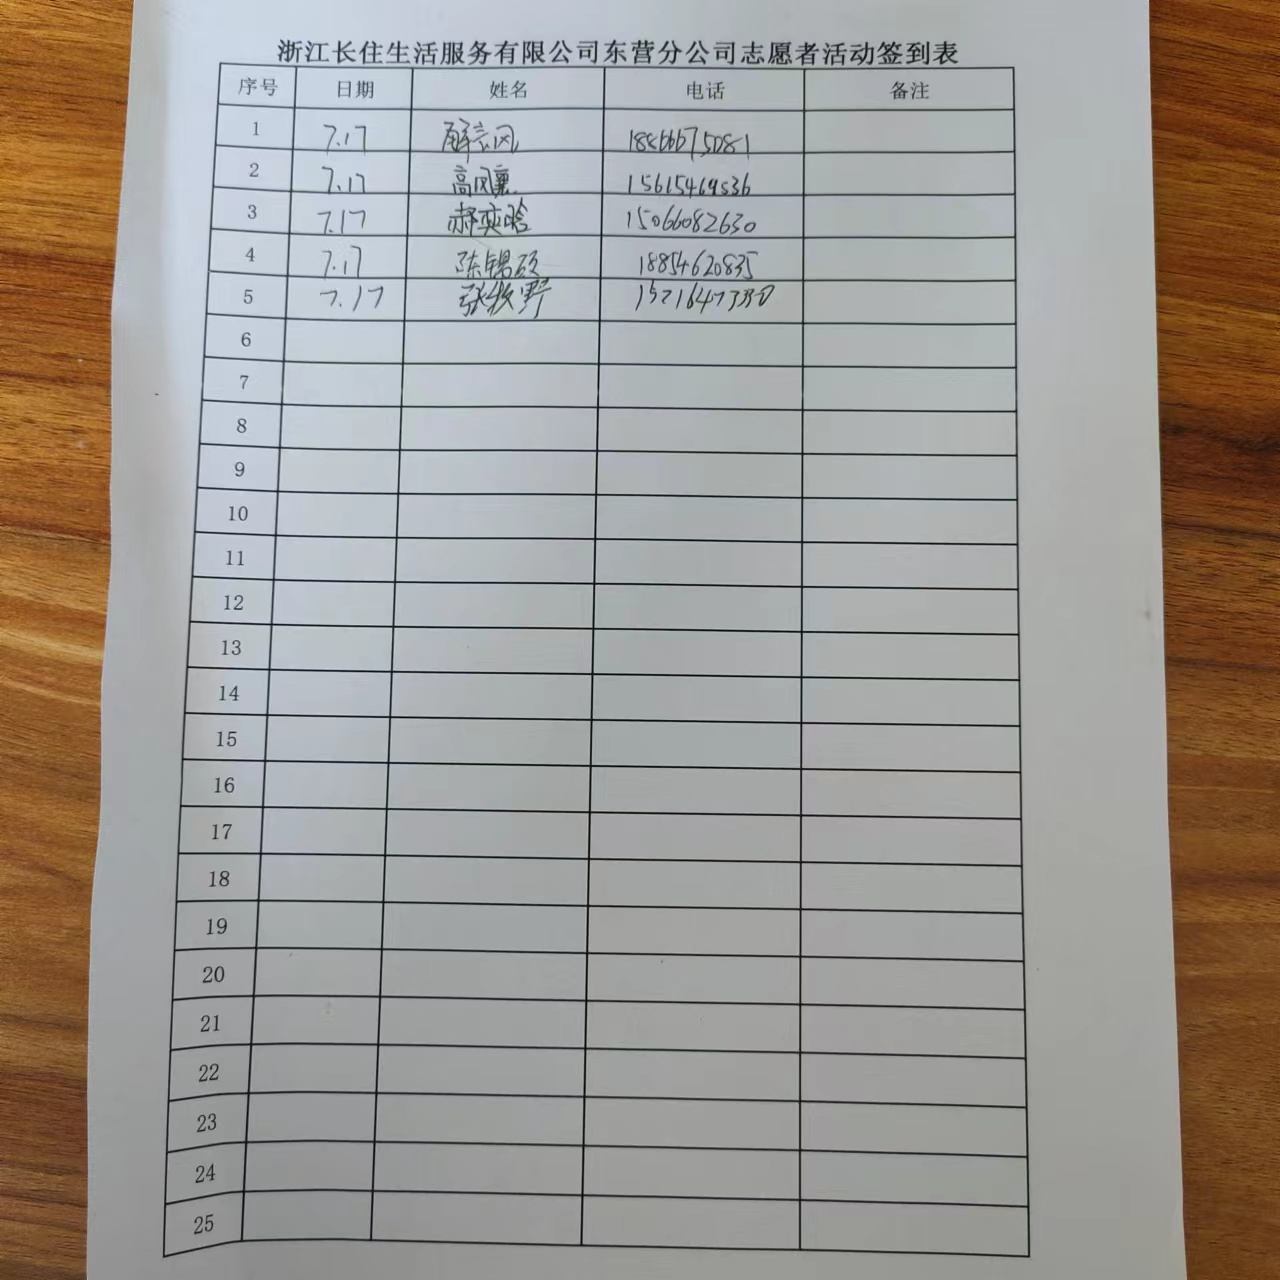 浙江长住生活服务有限公司东营分公司志愿者活动签到表
序号 日期 姓名 电话 备注
1 7.17 18866675081
2 7.17 高凤襄 15615469536
3 7.17 郝奕晗 15066082630
4 7.17 陈锡硕 18854620835
5 7.17 张牧野
6
7
8
9
10
11
12
13
14
15
16
17
18
19
20
21
22
23
24
25